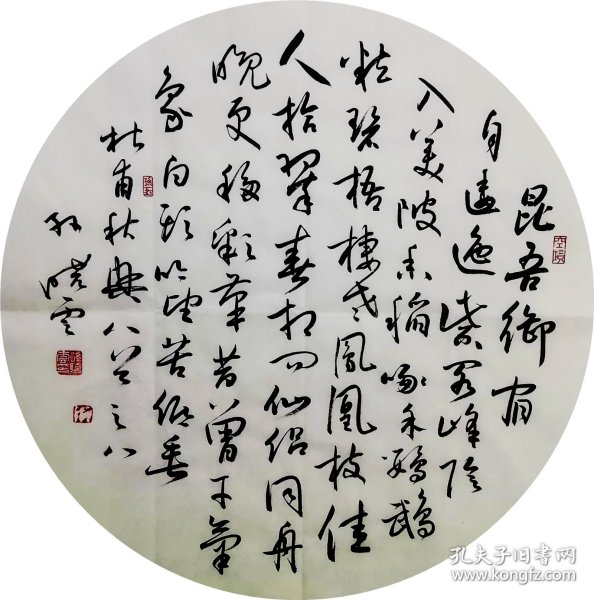 昆吾御宿
自逶迤紫閣峰陰
入美陂香稻啄余鸚鵡
粒碧梧棲老鳳凰枝佳
人拾翠春相問仙侶同舟
晚更移彩筆昔曾干氣
象白頭吟望苦低垂
杜甫秋興八首之八
孫曉雲
孔夫子旧书网
www.kongfz.com